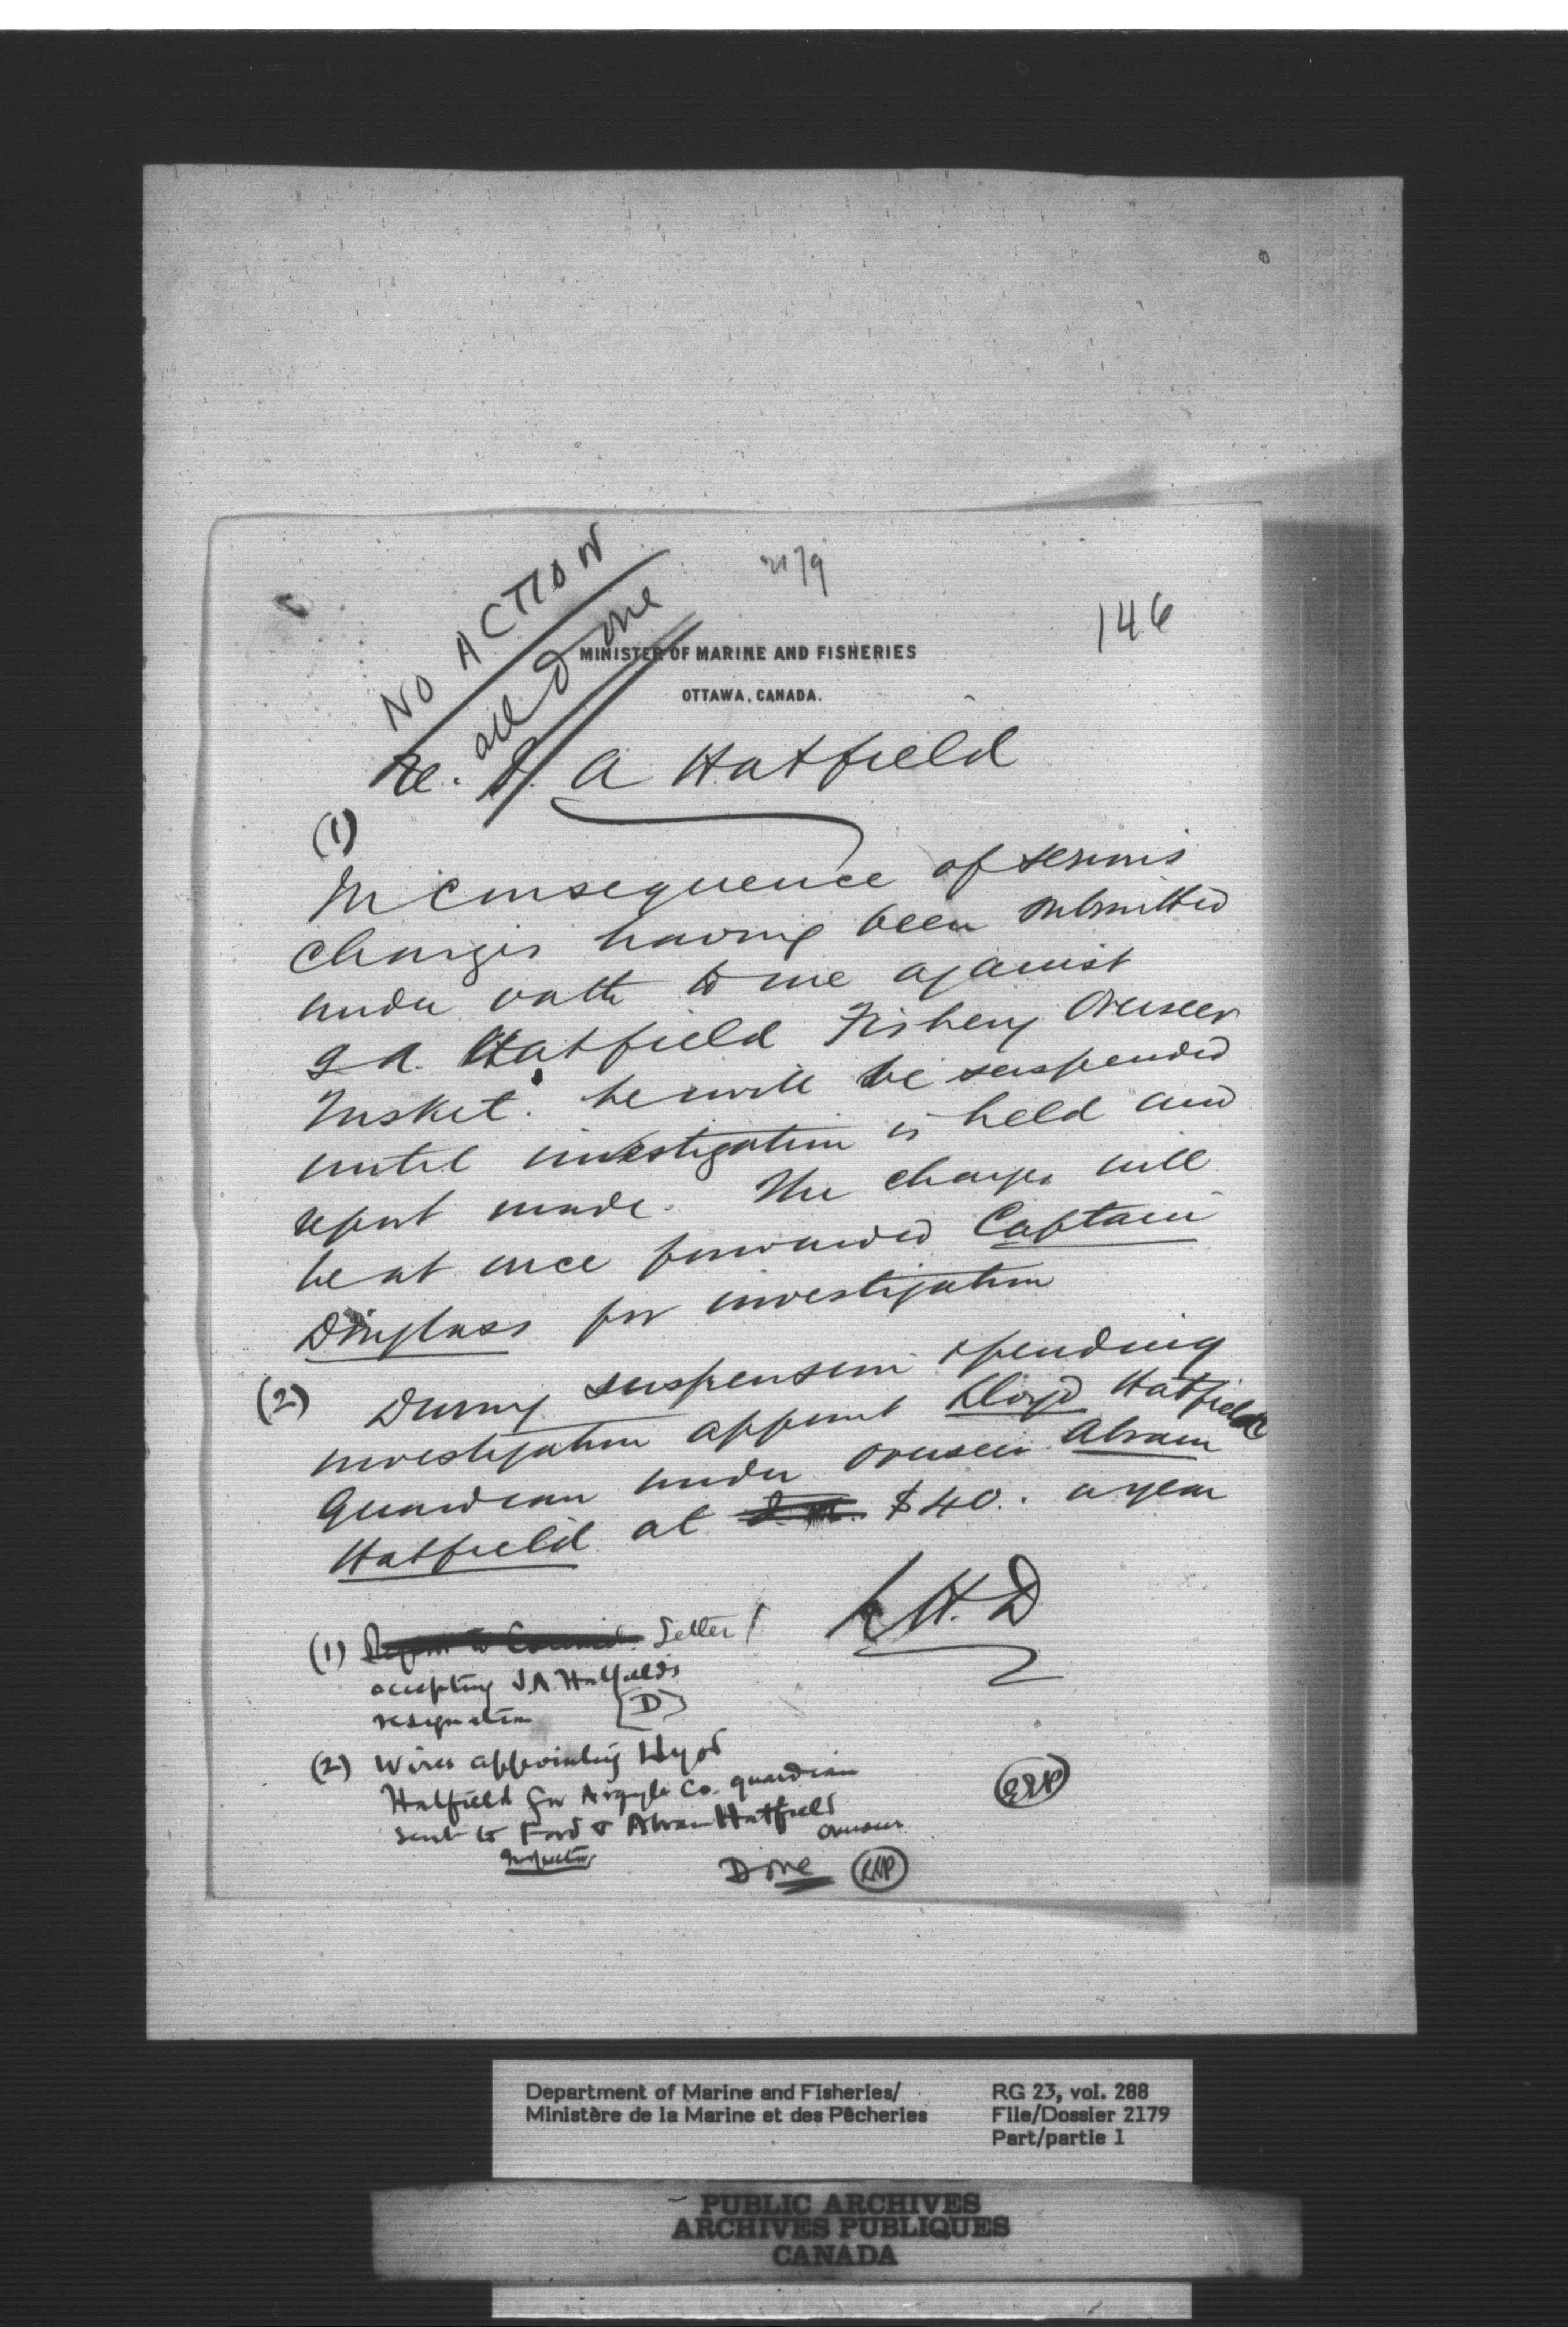 NO ACTION
all Done
2179
146
MINISTER OF MARINE AND FISHERIES
OTTAWA, CANADA.
Re. J. A Hatfield
(1)
In consequence of serious
charges having been submitted
under oath to me against
J A. Hatfield Fishery Overseer
Tusket. he will be suspended
until investigation is held and
report made. The charges will
be at once forwarded Captain
Douglass for investigation
(2) During suspension & pending
investigation appoint Lloyd Hatfield
Guardian under overseer Abram
Hatfield at $40. a year
L H. D
(1) Report to Council. Letter
accepting J.A. Hatfield's
resignation [D]
(2) Wires appointing Lloyd
Hatfield for Argyle Co. guardian
sent to Ford & Abram Hatfield
overseer
Inspector
Done
Department of Marine and Fisheries/
Ministère de la Marine et des Pêcheries
RG 23, vol. 288
File/Dossier 2179
Part/partie 1
PUBLIC ARCHIVES
ARCHIVES PUBLIQUES
CANADA